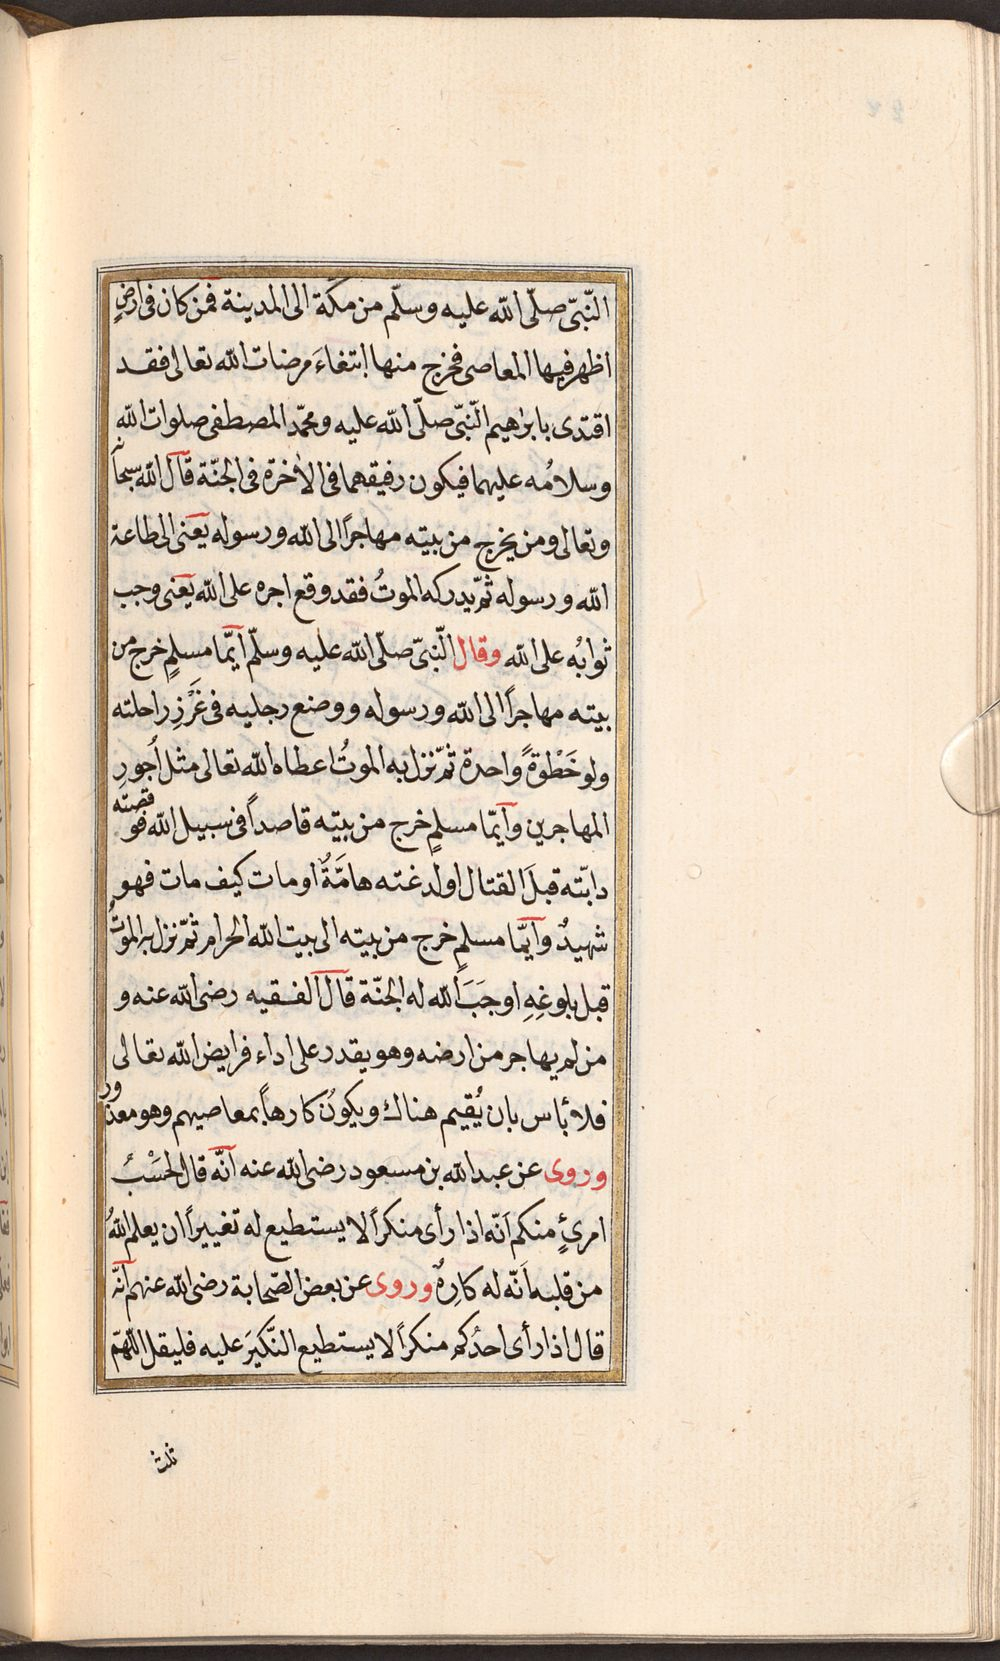 النّبىّ صلّى الله عليه وسلّم من مكّة الى المدينة فمن كان فى ارضٍ
اظهر فيها المعاصى فخرج منها ابتغاءَ مرضات الله تعالى فقد
اقتدى بابرٰهيم النّبىّ صلّى الله عليه ومحمّد المصطفى صلوات الله
وسلامُه عليهما فيكون رفيقهما فى الاٰخرة فى الجنّة قال الله سبحانه
وتعالى ومن يخرج من بيته مهاجرًا الى الله ورسوله يعنى الى طاعة
الله ورسوله ثمّ يدركه الموتُ فقد وقع اجره على الله يعنى وجب
ثوابُه على الله وقال النّبىّ صلّى الله عليه وسلّم ايّما مسلمٍ خرج من
بيته مهاجرًا الى الله ورسوله ووضع رجليه فى غَرْزِ راحلته
ولو خَطْوَةً واحدة ثمّ نزل به الموتُ اعطاه الله تعالى مثل اُجورِ
المهاجرين وايّما مسلمٍ خرج من بيته قاصداً فى سبيل الله فوقصته
دابّته قبلَ القتال او لدغته هامَّةٌ او مات كيف مات فهو
شهيدٌ وايّما مسلمٍ خرج من بيته الى بيت الله الحرام ثمّ نزل به الموتُ
قبل بلوغِهِ اوجَبَ الله له الجنّة قال الفقيه رضى الله عنه و
من لم يهاجر من ارضه وهو يقدر على اداء فرايض الله تعالى
فلا بأس بان يُقيم هناك ويكونُ كارهاً بمعاصيهم وهو معذور
وروى عن عبد الله بن مسعود رضى الله عنه انّه قال لحَسْبُ
امرئٍ منكم اَنّه اذا رأى منكراً لا يستطيع له تغييراً ان يعلم اللهُ
من قلبه اَنّه له كارِهٌ وروى عن بعض الصّحابة رضى الله عنهم انّه
قال اذا رأى احدُكم منكراً لا يستطيع النَّكيَر عليه فليقل اللّهمّ
ثلث